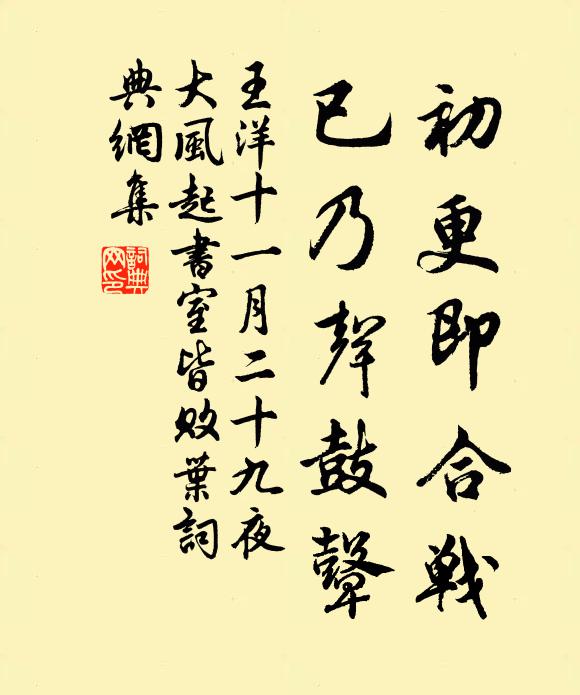 初更即合戰
已乃聲鼓鼙
王洋十一月二十九夜
大風起書室皆敗葉詞
典網集
詞典網印